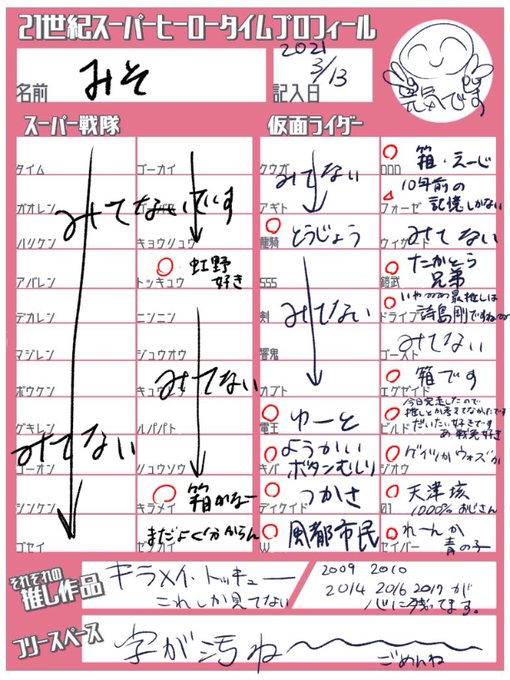 21世紀スーパーヒーロータイムプロフィール
名前
みそ
記入日
2021
3/13
元気です
スーパー戦隊
タイム
ガオレン
ハリケン
アバレン
デカレン
マジレン
ボウケン
ゲキレン
ゴーオン
シンケン
ゴセイ
みてないです
みてない
ゴーカイ
キョウリュウ
トッキュウ
虹野
好き
ニンニン
ジュウオウ
みてない
ルパパト
リュウソウ
キラメイ
箱かなー
まだよく分からん
仮面ライダー
クウガ
アギト
みてない
龍騎
とうじょう
555
剣
響鬼
カブト
みてない
電王
ゆーと
キバ
ようかい
ボタンむしり
ディケイド
つかさ
W
風都市民
OOO
箱・えーじ
フォーゼ
10年前の
記憶しかない
ウィザード
みてない
鎧武
たかとら
兄弟
ドライブ
最推しは
詩島剛ですね
ゴースト
みてない
エグゼイド
箱です
ビルド
今日完走したので
推しとか考えてなかたです
だいたい好きです
あ 戦兎好き
ジオウ
ゲイツかウォズか
01
天津垓
1000%おじさん
セイバー
れーんか
青の子
それぞれの
推し作品
キラメイ・トッキュー
これしか見てない
2009 2010
2014 2016 2017 が
心に残ってます。
フリースペース
字が汚ね
ごめんね